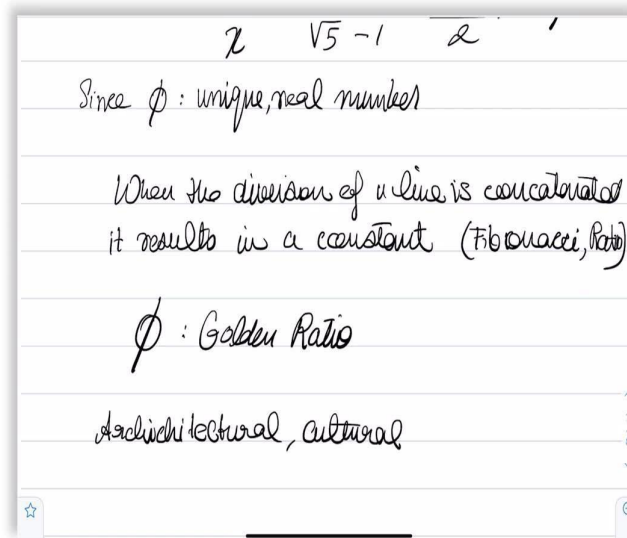 x √5 -1 2
Since ϕ : unique, real number
When the division of a line is concatenated
it results in a constant (Fibonacci, Ratio)
ϕ : Golden Ratio
Archichitectural, cultural